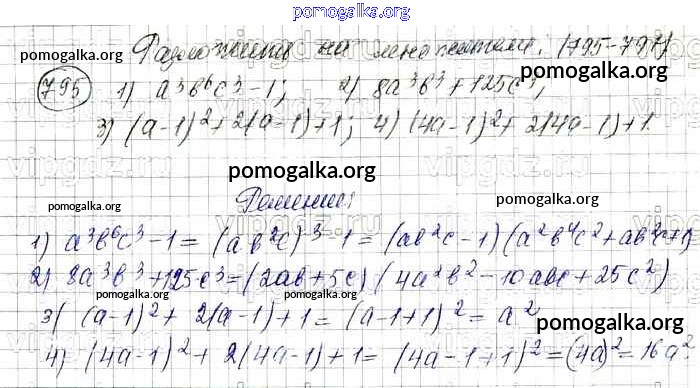 pomogalka.org
Разложить на множители. (795-797)
pomogalka.org
pomogalka.org
795 1) a³b⁶c³-1; 2) 8a³b³+125c³;
3) (a-1)²+2(a-1)+1; 4) (4a-1)²+2(4a-1)+1.
vipgdz.ru
pomogalka.org
pomogalka.org
pomogalka.org
Решение:
1) a³b⁶c³-1=(ab²c)³-1=(ab²c-1)(a²b⁴c²+ab²c+1)
pomogalka.org
2) 8a³b³+125c³=(2ab+5c)(4a²b²-10abc+25c²)
pomogalka.org
pomogalka.org
3) (a-1)²+2(a-1)+1=(a-1+1)²=a²
pomogalka.org
4) (4a-1)²+2(4a-1)+1=(4a-1+1)²=(4a)²=16a²